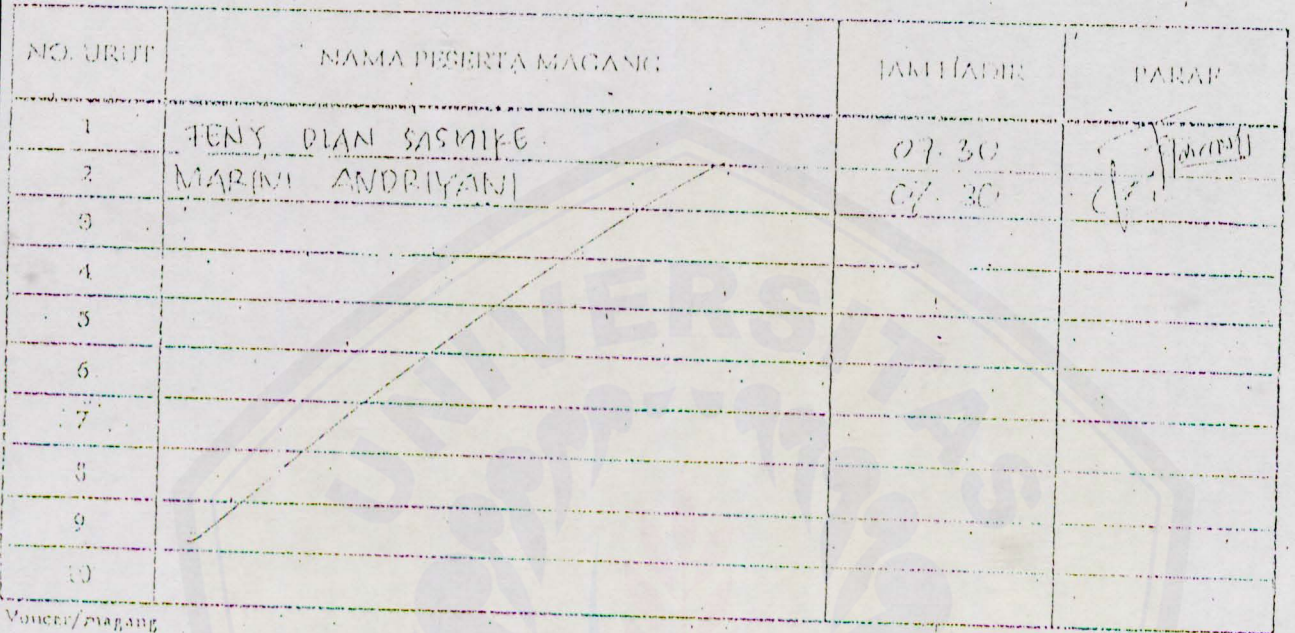 NO. URUT NAMA PESERTA MAGANG JAM HADIR PARAF
1 FENY DIAN SASMIKE 07.30
2 MARINI ANDRIYANI 07.30
3
4
5
6
7
8
9
10
Voucer/magang
UNIVERSITAS